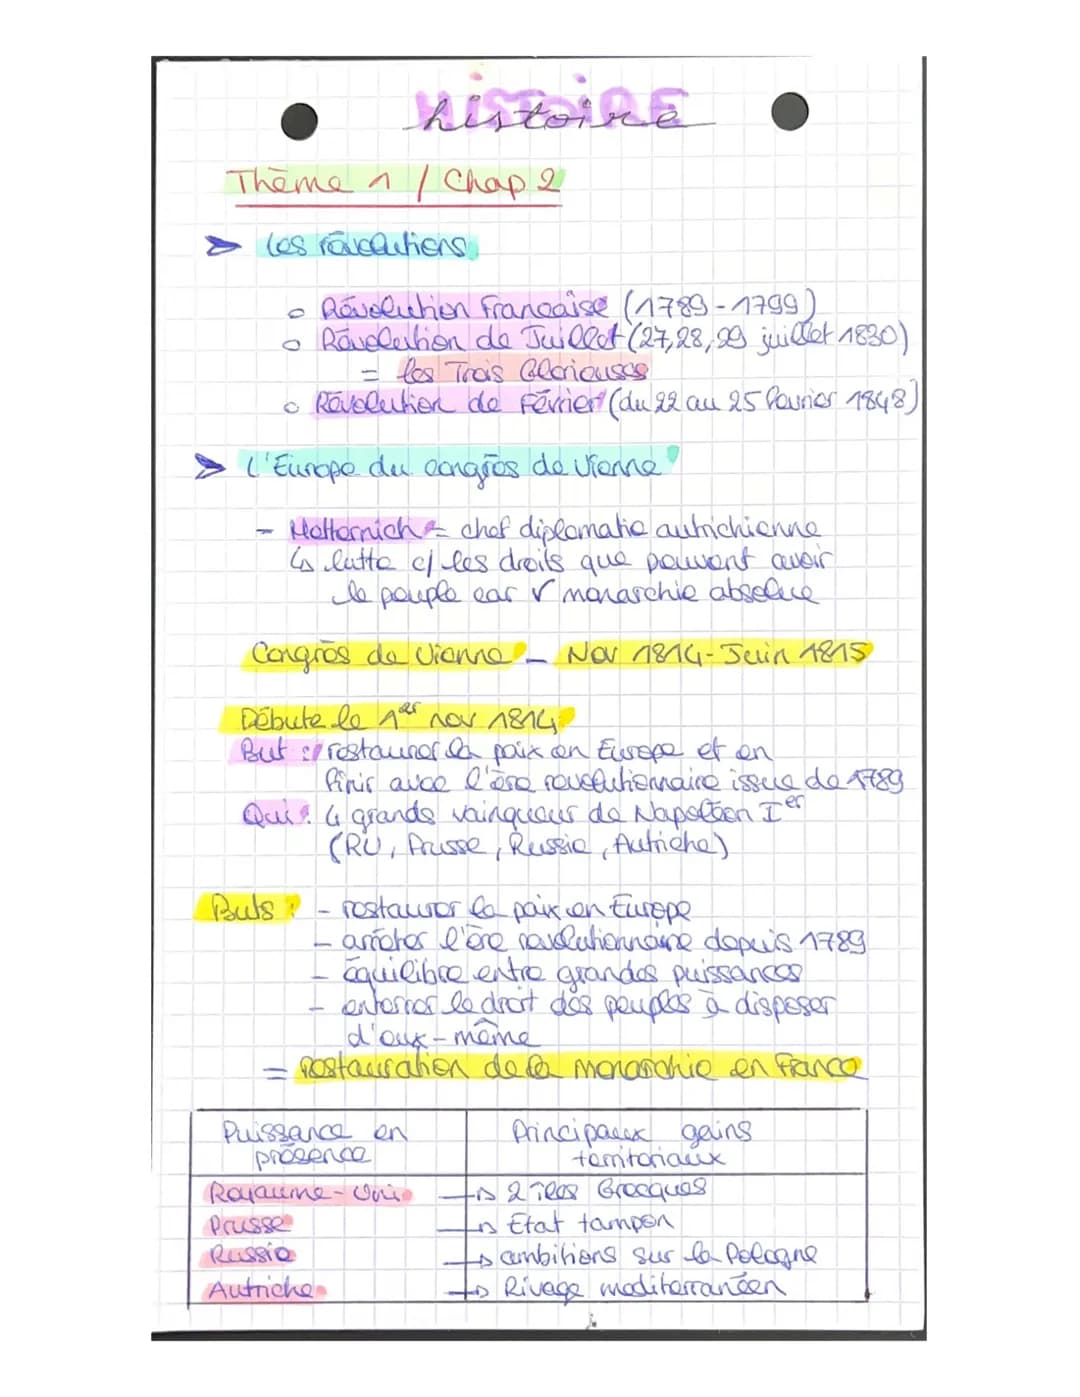 histoire
Thème 1 / Chap 2
Les révolutions
Révolution Française (1789-1799)
Révolution de Juillet (27,28,29 juillet 1830)
= les Trois Glorieuses
Révolution de Février (du 22 au 25 février 1848)
L'Europe du congrès de Vienne
- Metternich = chef diplomatie autrichienne
↳ lutte c/ les droits que peuvent avoir
le peuple car v monarchie absolue
Congrès de Vienne - Nov 1814-Juin 1815
Débute le 1er nov 1814
But : restaurer la paix en Europe et en
finir avec l'ère revolutionnaire issue de 1789
Qui : 4 grands vainqueur de Napoléon Ier
(RU, Prusse, Russie, Autriche)
Buts : - restaurer la paix en Europe
- arrêter l'ère revolutionnaire depuis 1789
- équilibre entre grandes puissances
- enterrer le droit des peuples à disposer
d'eux-même
= Restauration de la monarchie en France
Puissance en présence
Principaux gains territoriaux
Royaume-Uni → 2 îles Grecques
Prusse → Etat tampon
Russie → ambitions sur la Pologne
Autriche → Rivage mediterranéen